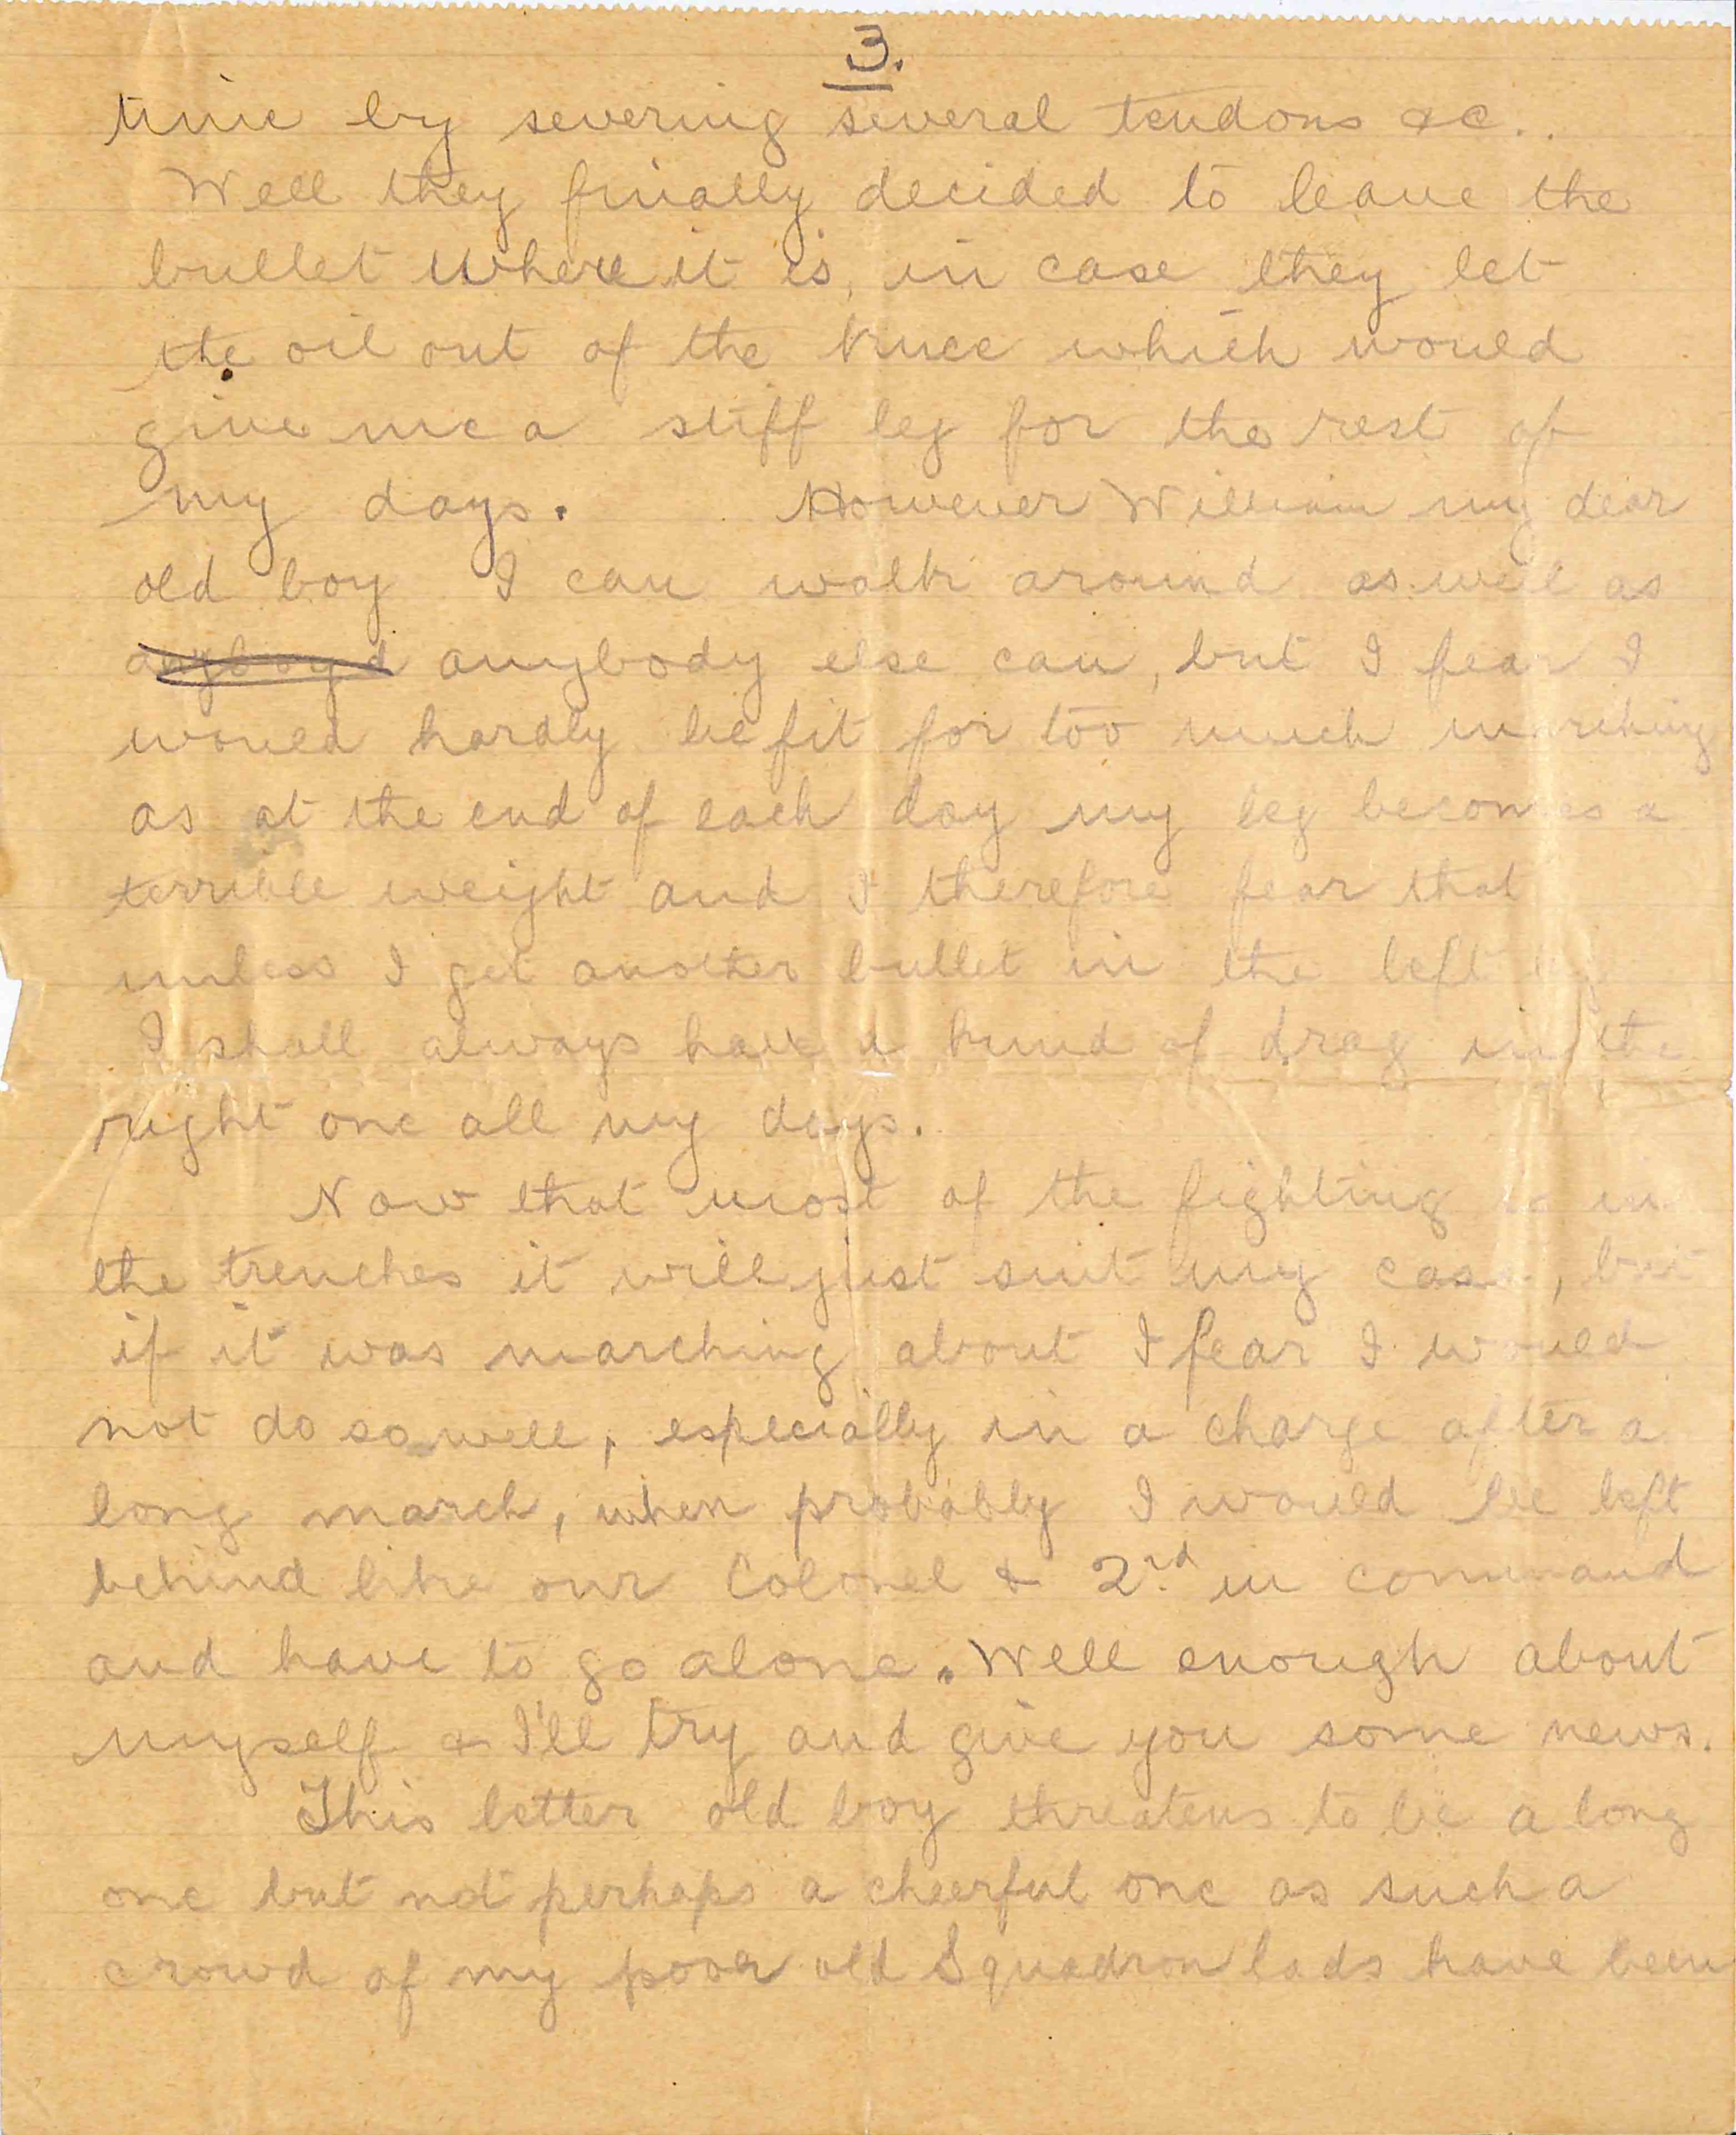 3.
time by severing several tendons &c..
Well they finally decided to leave the
bullet where it is, in case they let
the oil out of the knee which would
give me a stiff leg for the rest of
my days. However William my dear
old boy I can walk around as well as
anybody else can, but I fear I
would hardly be fit for too much marching
as at the end of each day my leg becomes a
terrible weight and I therefore fear that
unless I get another bullet in the left
I shall always have a kind of drag in the
right one all my days.
Now that most of the fighting is in
the trenches it will just suit my case, but
if it was marching about I fear I would
not do so well, especially in a charge after a
long march, when probably I would be left
behind like our Colonel & 2nd in command
and have to go alone. Well enough about
myself & I'll try and give you some news.
This letter old boy threatens to be a long
one but not perhaps a cheerful one as such a
crowd of my poor old Squadron lads have been